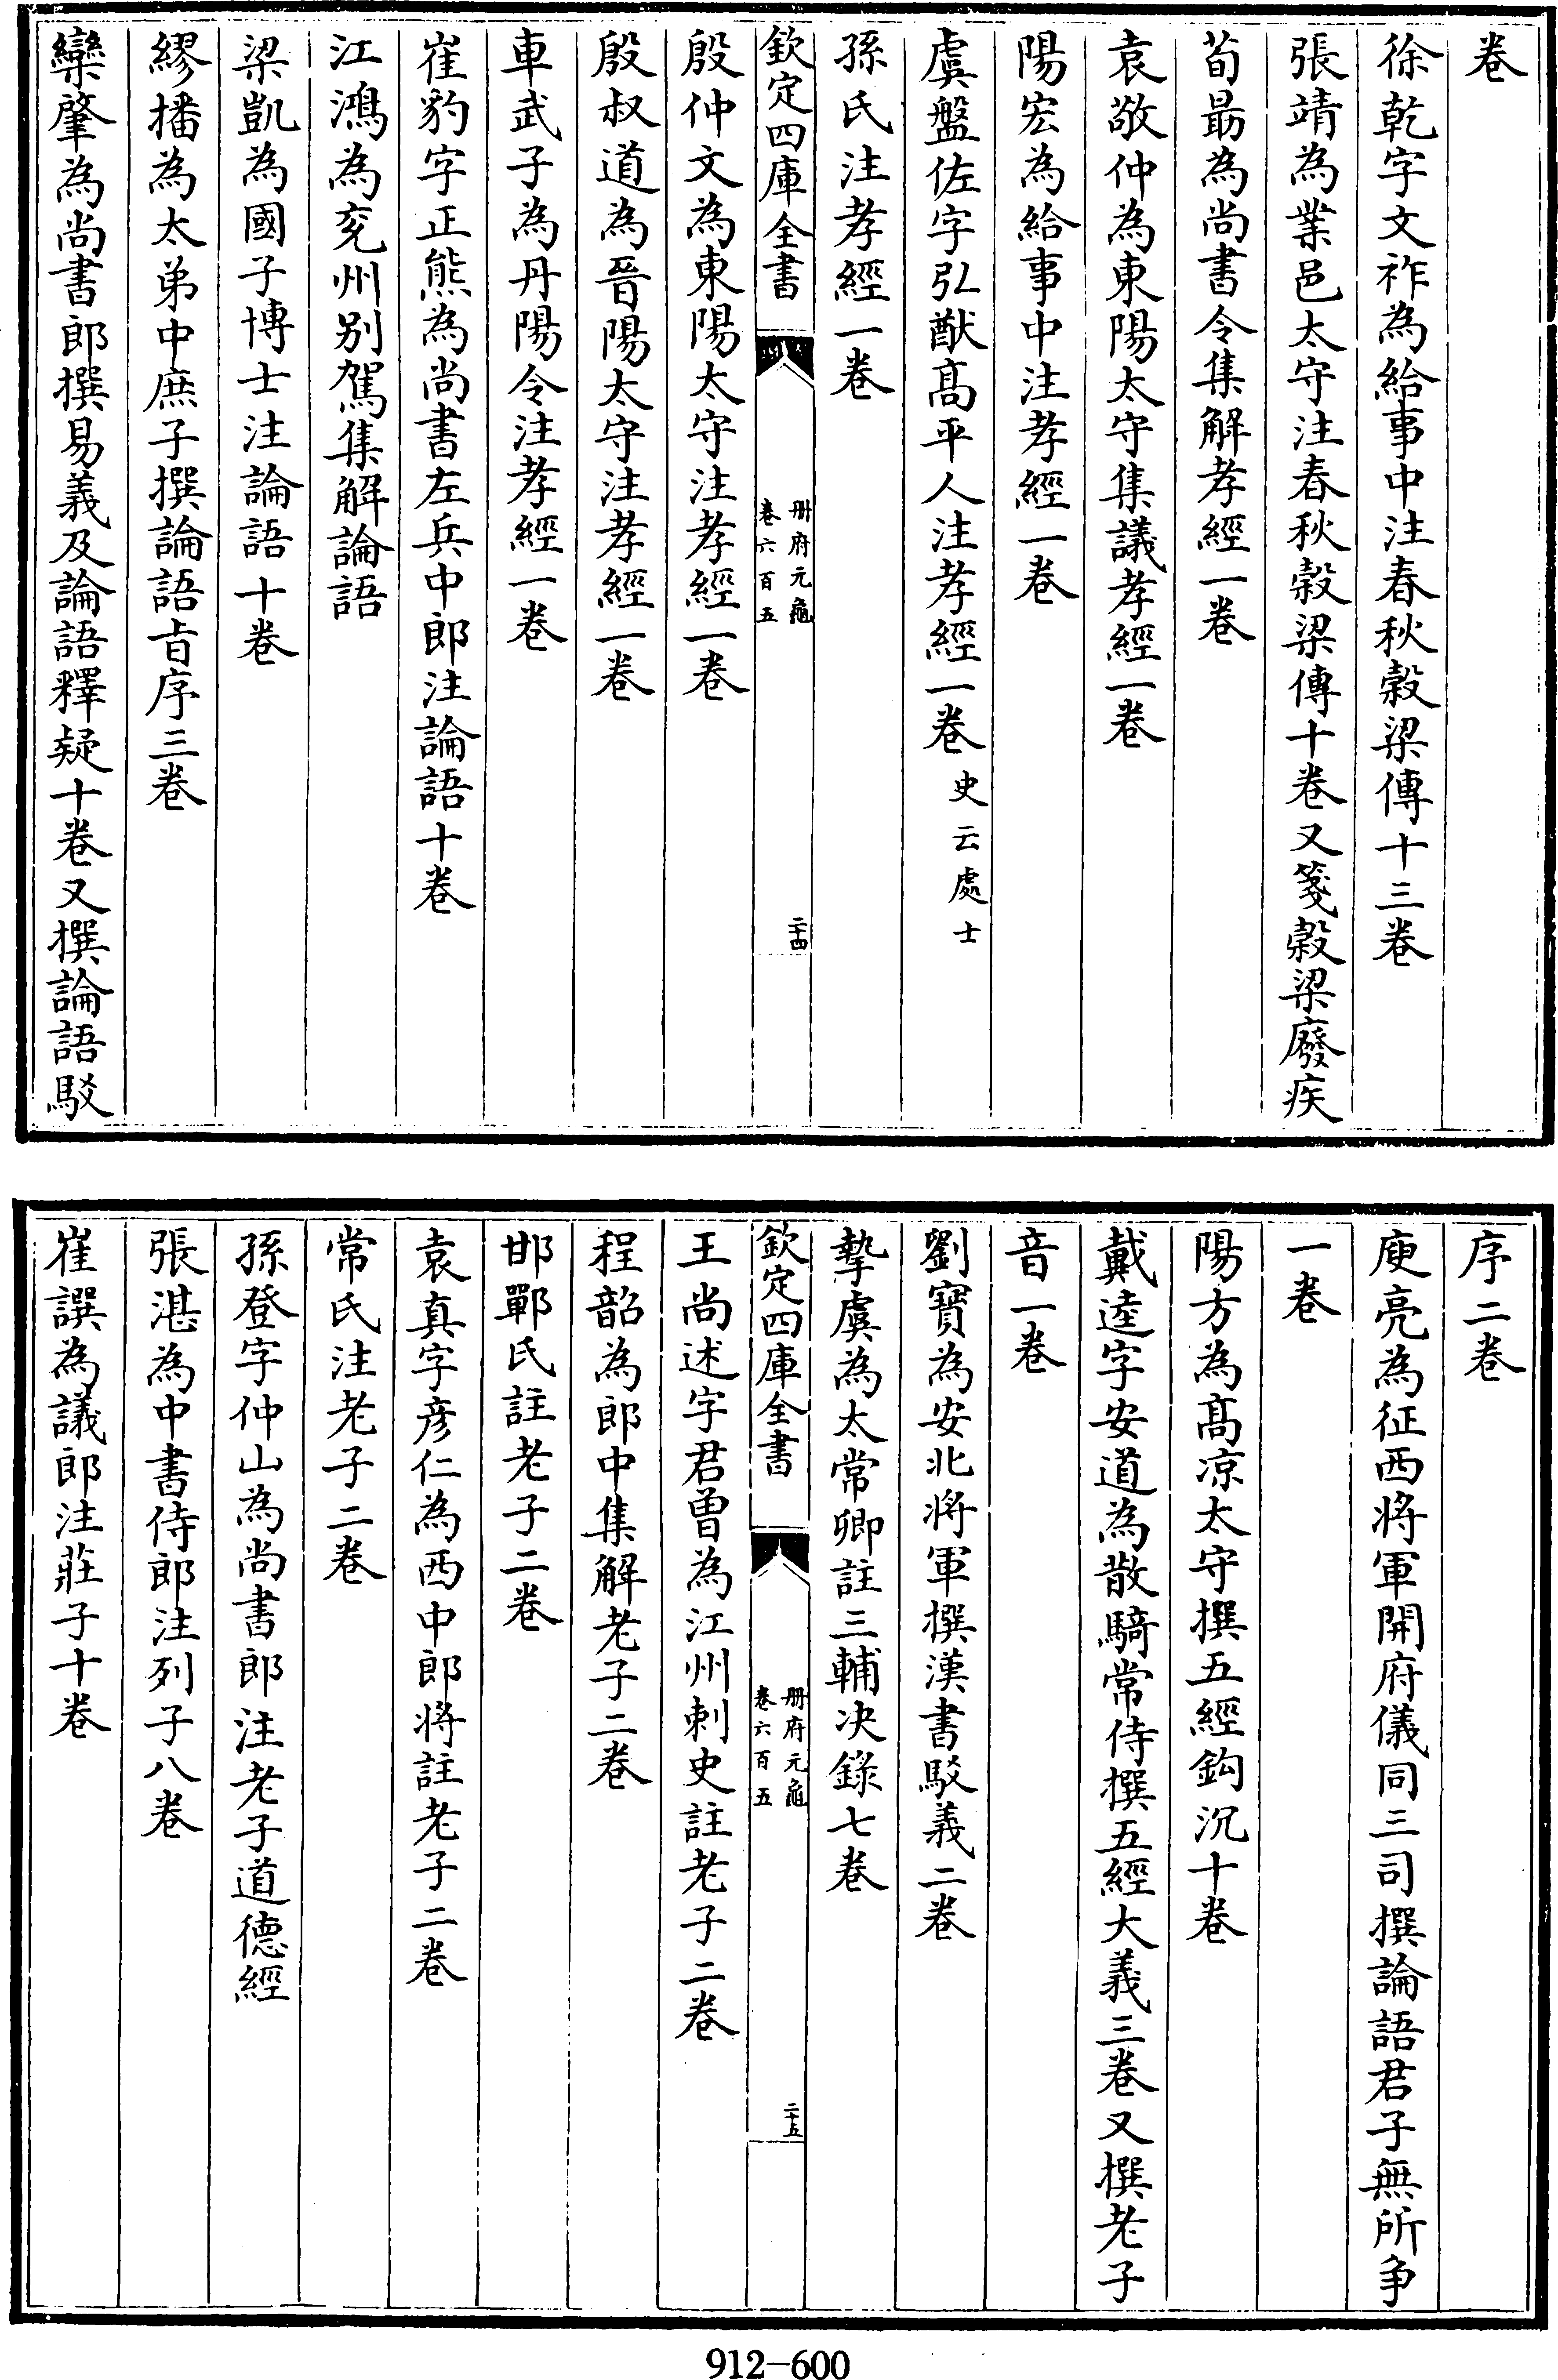 卷
徐乾字文祚為給事中注春秋榖梁傳十三卷
張靖為業邑太守注春秋榖梁傳十卷又箋榖梁廢疾
荀勗為尚書令集解孝經一卷
袁敬仲為東陽太守集議孝經一卷
陽宏為給事中注孝經一卷
虞盤佐字弘猷髙平人注孝經一卷史云處士
孫氏注孝經一卷
欽定四庫全書
冊府元龜
卷六百五
二十四
殷仲文為東陽太守注孝經一卷
殷叔道為晉陽太守注孝經一卷
車武子為丹陽令注孝經一卷
崔豹字正熊為尚書左兵中郎注論語十卷
江鴻為兖州别駕集解論語
梁凱為國子博士注論語十卷
繆播為太弟中庶子撰論語㫖序三卷
欒肇為尚書郎撰易義及論語釋疑十卷又撰論語駁
序二卷
庾亮為征西將軍開府儀同三司撰論語君子無所爭
一卷
陽方為髙凉太守撰五經鈎沉十卷
戴逵字安道為散騎常侍撰五經大義三卷又撰老子
音一卷
劉寳為安北將軍撰漢書駁義二卷
摯虞為太常卿註三輔决錄七卷
欽定四庫全書
冊府元龜
卷六百五
二十五
王尚述字君曾為江州刺史註老子二卷
程韶為郎中集解老子二卷
邯鄲氏註老子二卷
袁真字彦仁為西中郎將註老子二卷
常氏注老子二卷
孫登字仲山為尚書郎注老子道德經
張湛為中書侍郎注列子八卷
崔譔為議郎注莊子十卷
912-600